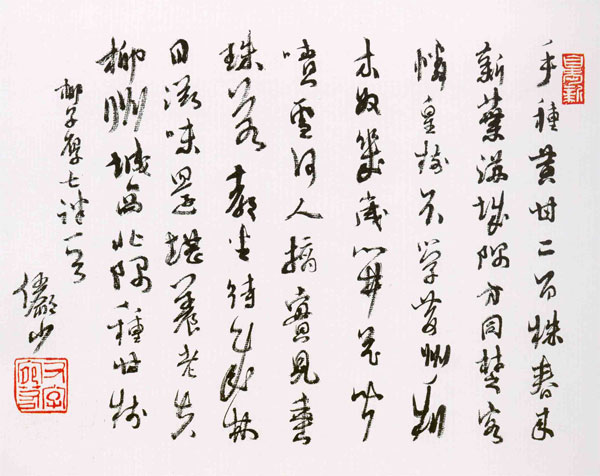 手種黃甘二百株春來
新葉滿城隅方同楚客
憐皇樹不學荆州利
木奴幾歲開花聞
噴雪何人摘實見垂
珠若教坐待成林
日滋味還堪養老夫
柳州城西北隅種甘樹
柳子厚七律一首
儼少